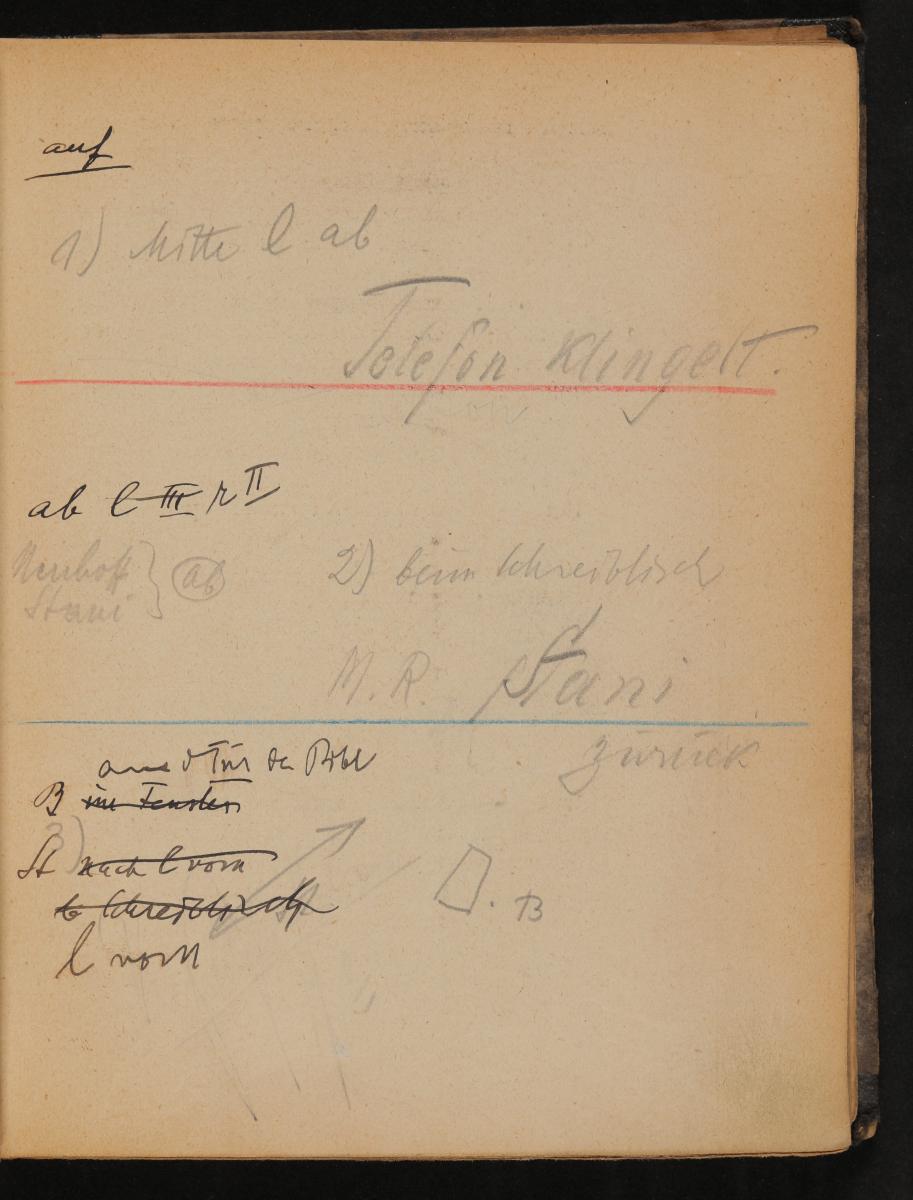 auf
1) Mitte l ab
Telefon klingelt.
ab l III r II
Neuhoff
Stani } ab
2) beim Schreibtisch
M. R. Stani
zurück
aus d Tür der Bibl
B im Fenster
3)
St nach l vorn
b Schreibtisch
St
B
l vorn